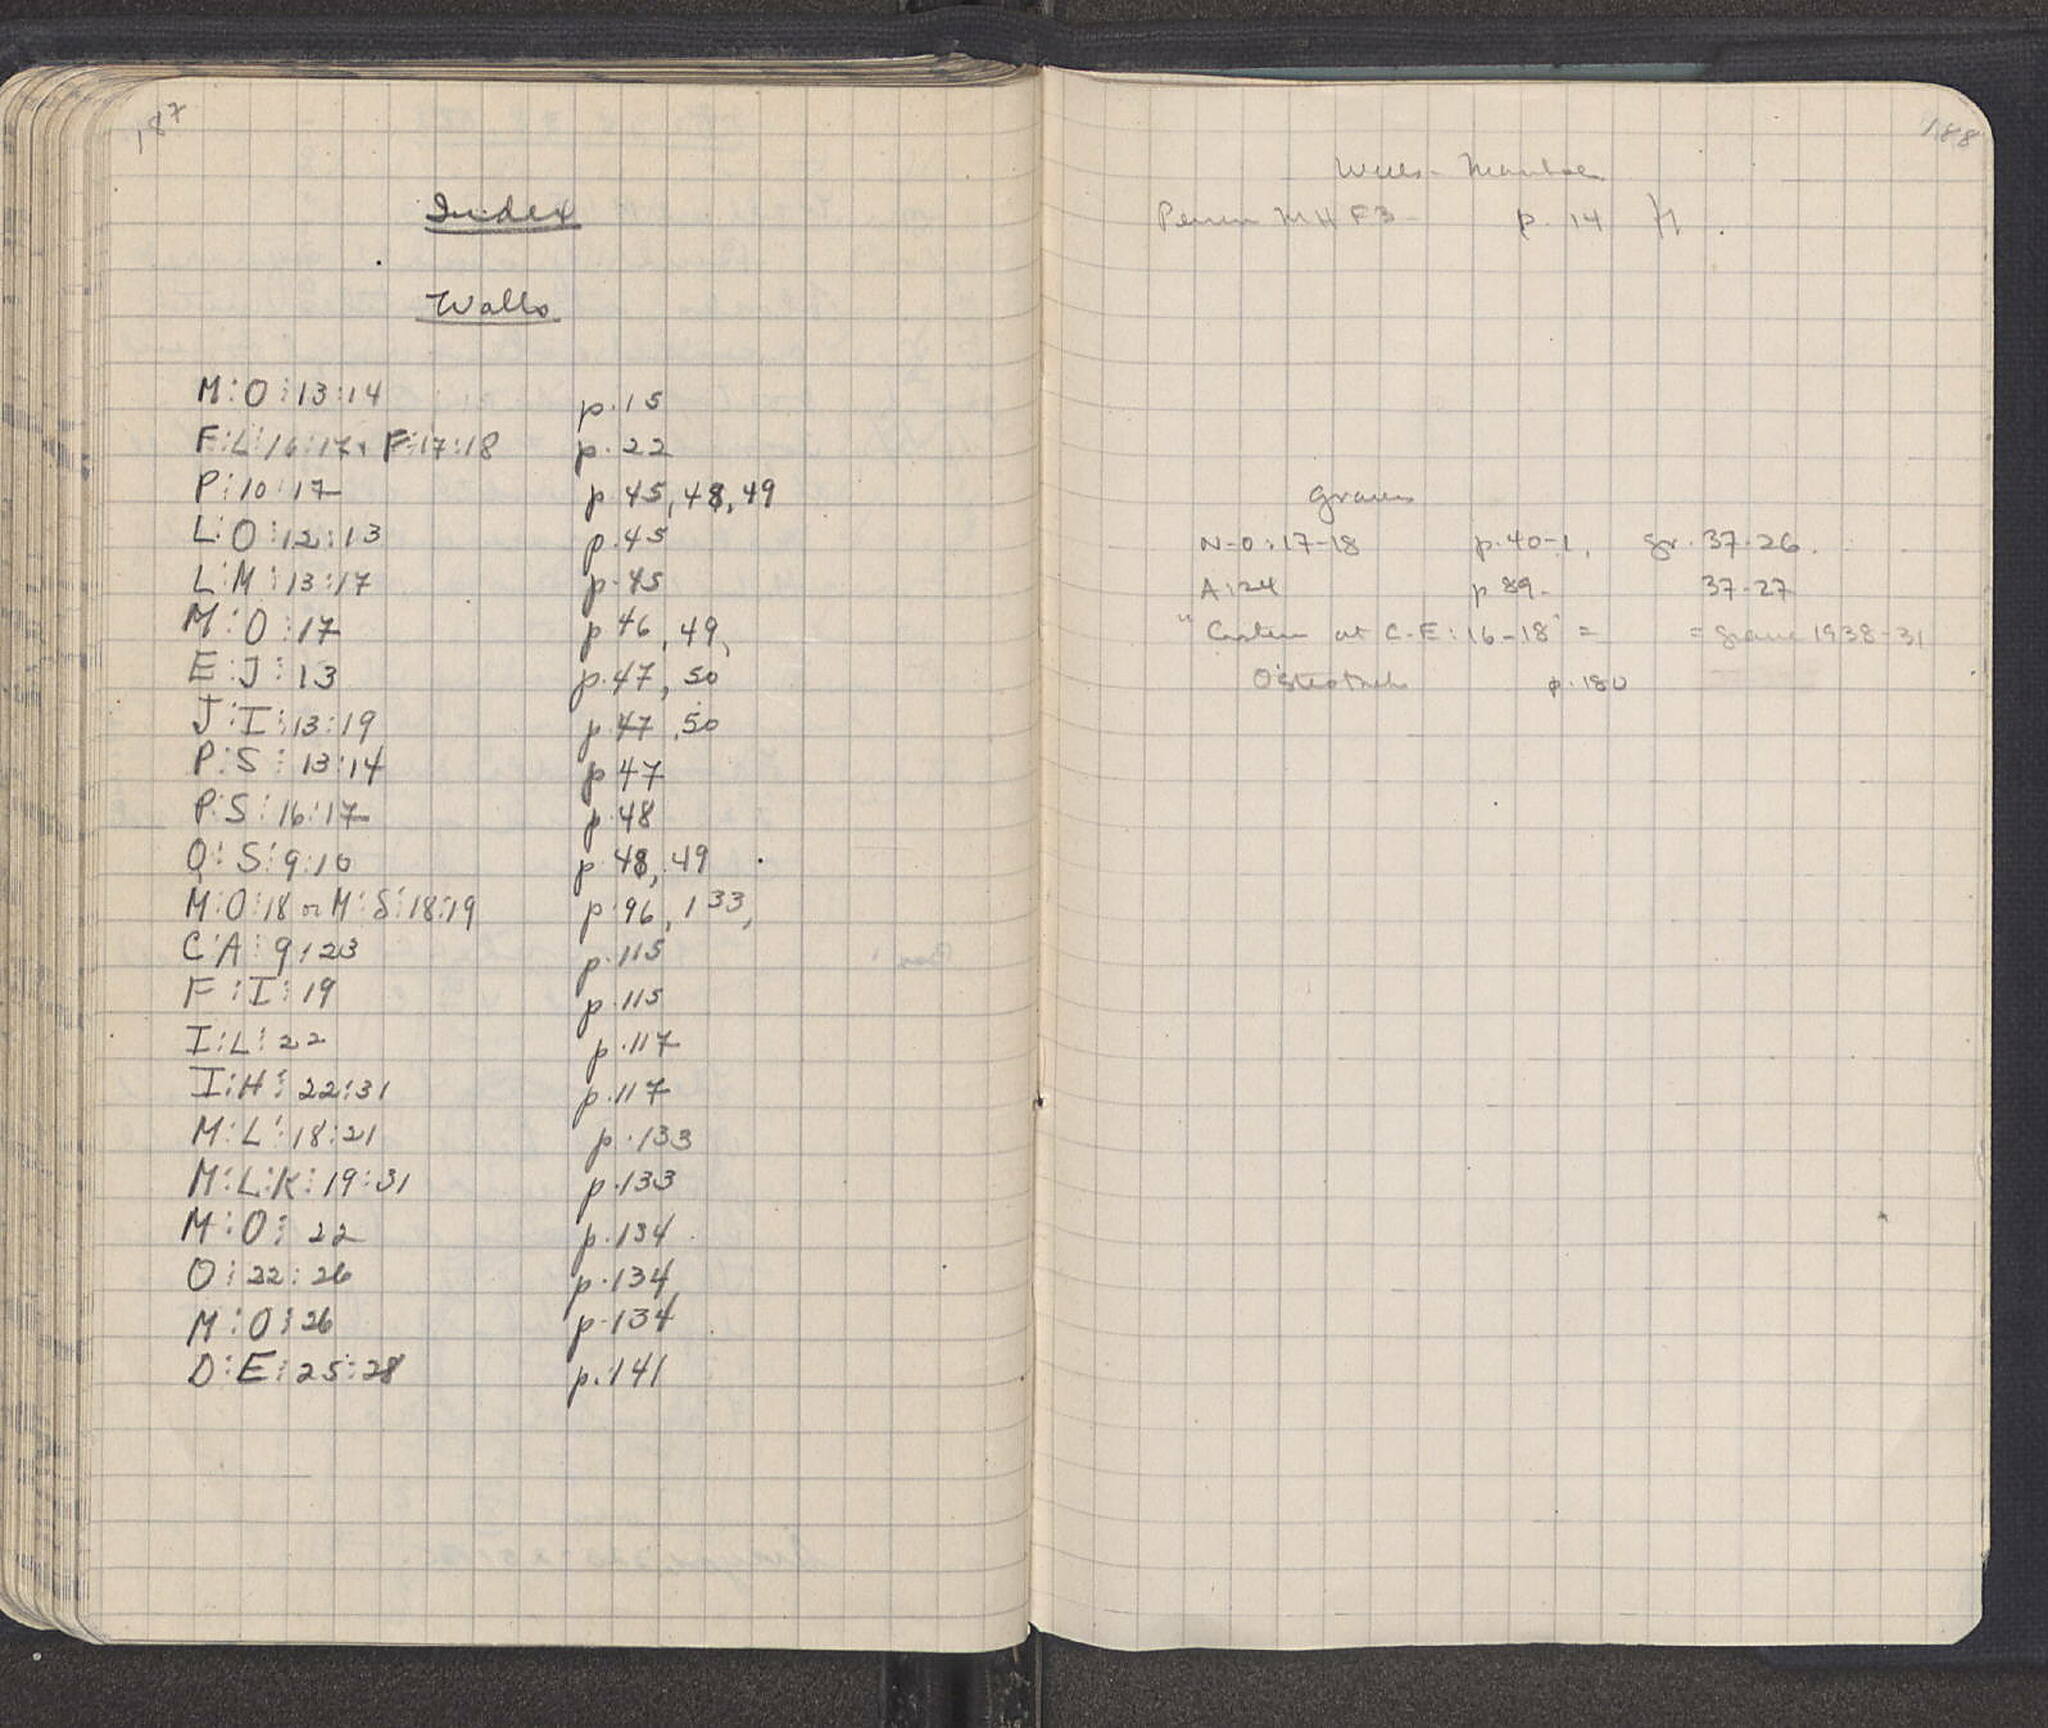 187
Index
Walls
M:O:13:14 p.15
F:L:16:17, F:17:18 p.22
P:10:17 p 45, 48, 49
L:O:12:13 p.45
L:M:13:17 p.45
M:O:17 p 46, 49,
E:J:13 p.47, 50
J:I:13:19 p.47, 50
P:S:13:14 p 47
P:S:16:17 p.48
Q:S:9:10 p 48, 49
M:O:18 or M:S:18:19 p.96, 133,
C:A:9:23 p.115
F:I:19 p.115
I:L:22 p.117
I:H:22:31 p.117
M:L:18:21 p.133
M:L:K:19:31 p.133
M:O:22 p.134
O:22:26 p.134
M:O:26 p.134
D:E:25:28 p.141
188
Wells - Manhole
MH F3 - p. 14
Graves
N-O:17-18 p.40-1, gr. 37-26.
A:24 p 89- 37-27
"Cistern at C-E:16-18" = = grave 1938-31
Osteotheke p.180